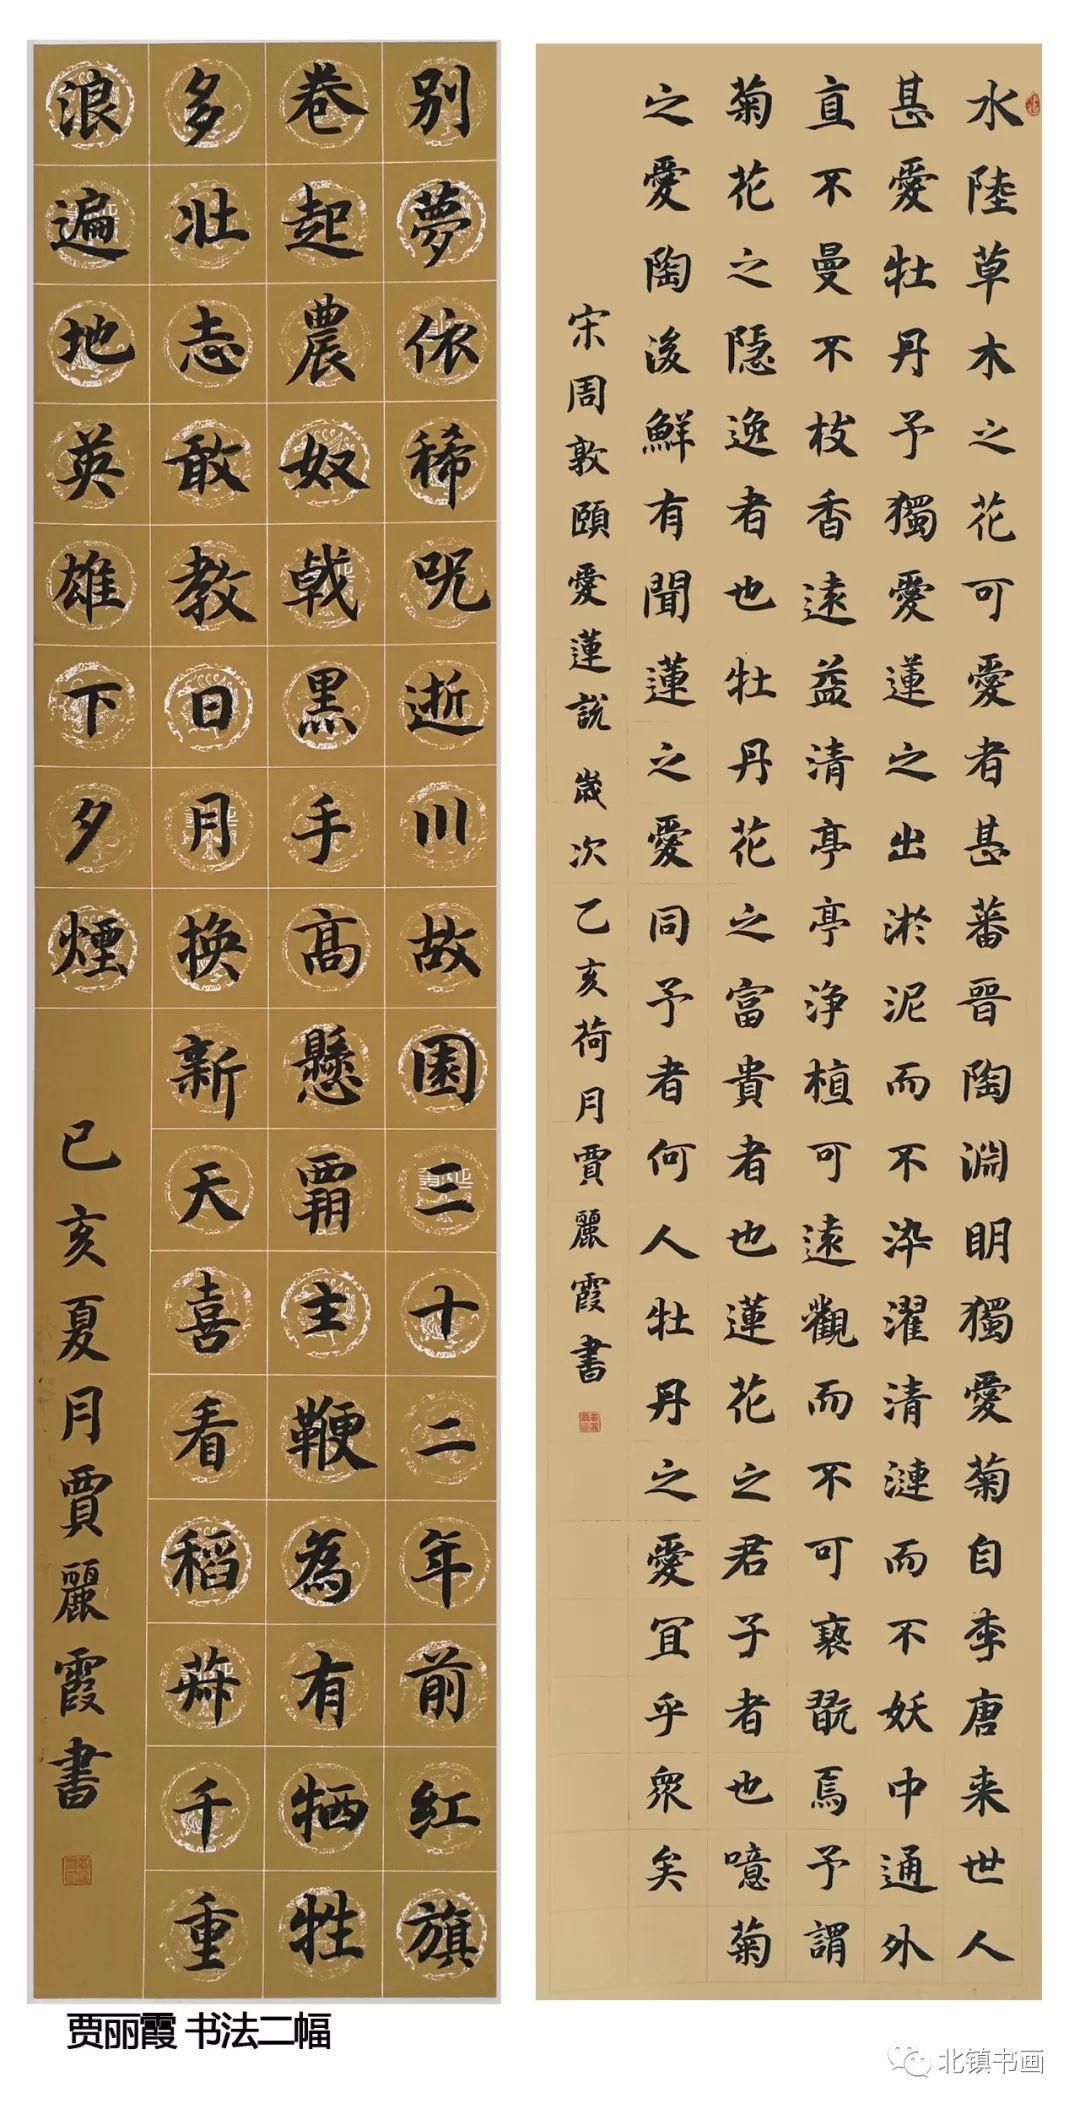 别夢依稀呪逝川故園三十二年前紅旗
巻起農奴戟黑手高懸覇主鞭為有牺牲
多壮志敢教日月換新天喜看稻菽千重
浪遍地英雄下夕煙
己亥夏月賈麗霞書
水陸草木之花可愛者甚蕃晉陶淵明獨愛菊自李唐来世人
甚愛牡丹予獨愛蓮之出淤泥而不染濯清漣而不妖中通外
直不曼不枝香遠益清亭亭浄植可遠觀而不可褻翫焉予謂
菊花之隱逸者也牡丹花之富貴者也蓮花之君子者也噫菊
之愛陶後鮮有聞蓮之愛同予者何人牡丹之愛宜乎眾矣
宋周敦頤愛蓮說 歲次乙亥荷月賈麗霞書
贾丽霞 书法二幅
北镇书画